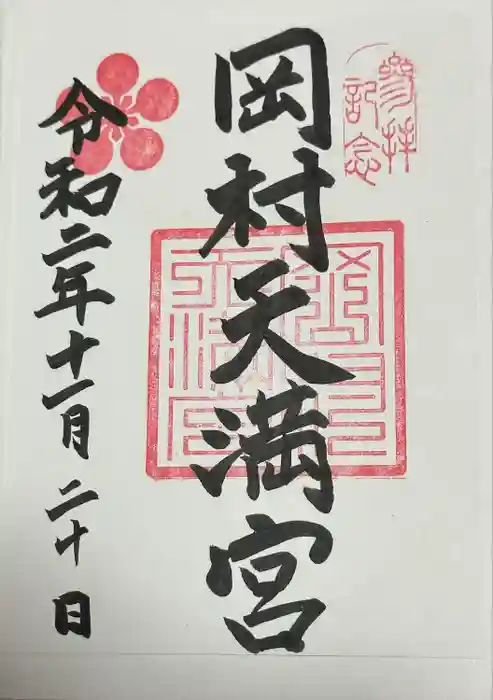 参拝
記念
岡村天満宮
令和二年十一月二十日